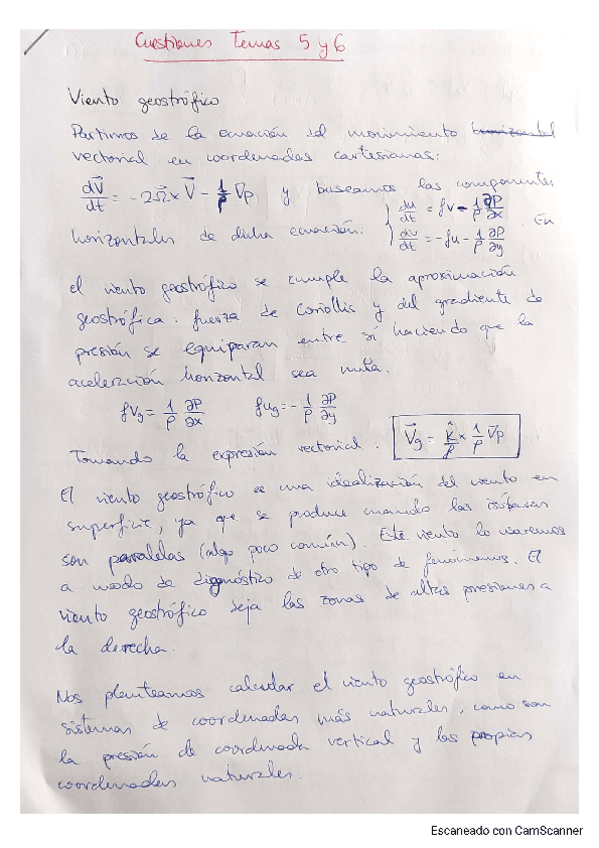 Cuestiones Temas 5 y 6
Viento geostrófico
Partimos de la ecuación del movimiento horizontal
vectorial en coordenadas cartesianas:
dV⃗/dt = -2Ω⃗ x V⃗ - 1/ρ ∇p y buscamos las componentes
horizontales de dicha ecuación. { du/dt = fv - 1/ρ ∂P/∂x ; dv/dt = -fu - 1/ρ ∂P/∂y . En
el viento geostrófico se cumple la aproximación
geostrófica: fuerza de Coriollis y del gradiente de
presión se equiparan entre sí haciendo que la
aceleración horizontal sea nula.
fVg = 1/ρ ∂P/∂x fug = - 1/ρ ∂P/∂y
Tomando la expresión vectorial: V⃗g = k̂/f x 1/ρ ∇⃗p
El viento geostrófico es una idealización del viento en
superficie, ya que se produce cuando las isóbaras
son paralelas (algo poco común). Este viento lo usaremos
a modo de diagnóstico de otro tipo de fenómenos. El
viento geostrófico deja las zonas de altas presiones a
la derecha.
Nos planteamos calcular el viento geostrófico en
sistemas de coordenadas más naturales, como son
la presión de coordenada vertical y las propias
coordenadas naturales.
Escaneado con CamScanner